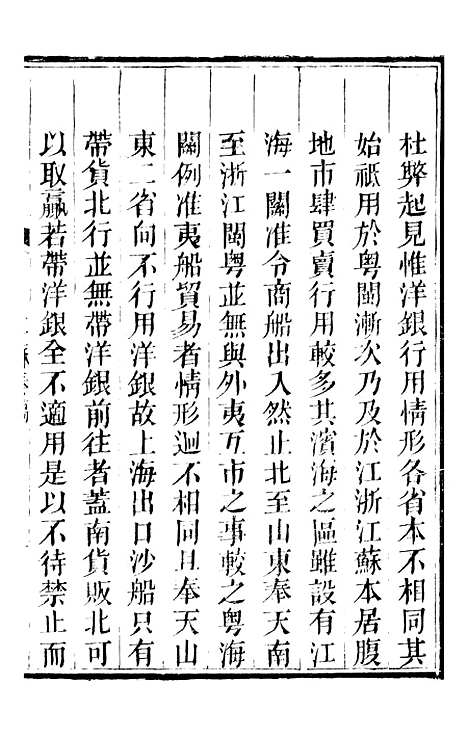 杜弊起見惟洋銀行用情形各省本不相同其
始祗用於粵閩漸次乃及於江浙江蘇本居腹
地市肆買賣行用較多其濱海之區雖設有江
海一關准令商船出入然止北至山東奉天南
至浙江閩粵並無與外夷互市之事較之粵海
關例准夷船貿易者情形迥不相同且奉天山
東二省向不行用洋銀故上海出口沙船只有
帶貨北行並無帶洋銀前往者蓋南貨販北可
以取贏若帶洋銀全不適用是以不待禁止而